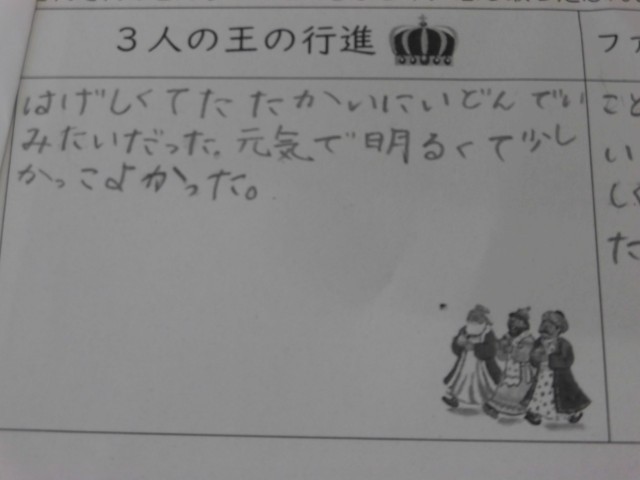 3人の王の行進
ファ
はげしくてたたかいにいどんでい
みたいだった。元気で明るくて少し
かっこよかった。
こと
い
しく
た